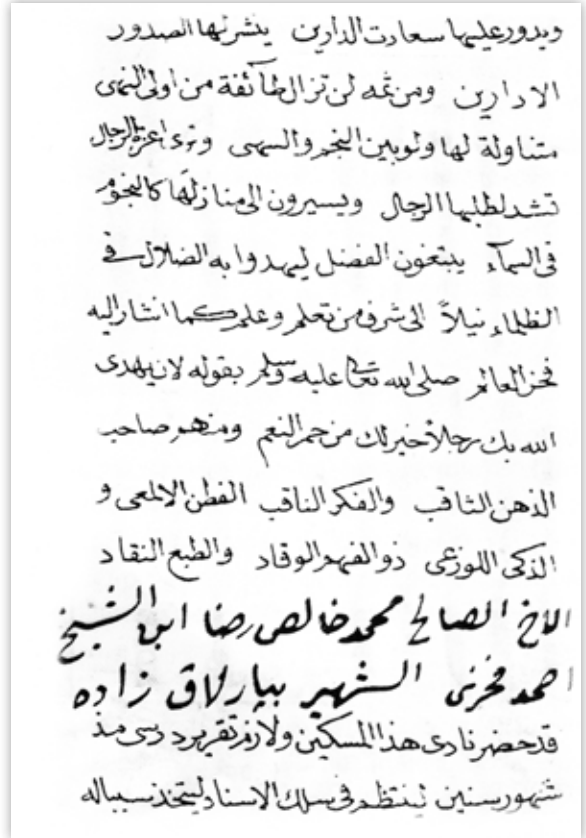 ويدور عليها سعادت الدارين ينشر لها الصدور
الادارين ومن ثمه لن تزال طائفة من اولى النهى
متناولة لها ولو بين النجم والسهى وترى اعزة الرجال
تشد لطلبها الرحال ويسيرون الى منازلها كالنجوم
فى السماء يبتغون الفضل ليهدوا به الضلال فى
الظلماء نيلاً الى شرف من تعلم وعلم كما اشار اليه
فخر العالم صلى الله تعالى عليه وسلم بقوله لان يهدى
الله بك رجلاً خير لك من حمر النعم ومنهم صاحب
الذهن الثاقب والفكر الناقب الفطن الالمعى و
الذكى اللوزعى ذو الفهم الوقاد والطبع النقاد
الاخ الصالح محمد خالص رضا ابن الشيخ
احمد فخرى الشهير ببارلاق زاده
قد حضر نادى هذا المسكين ولازم تقرير درسى منذ
شهور سنين لينتظم فى سلك الاسناد ليتخذ سبباله